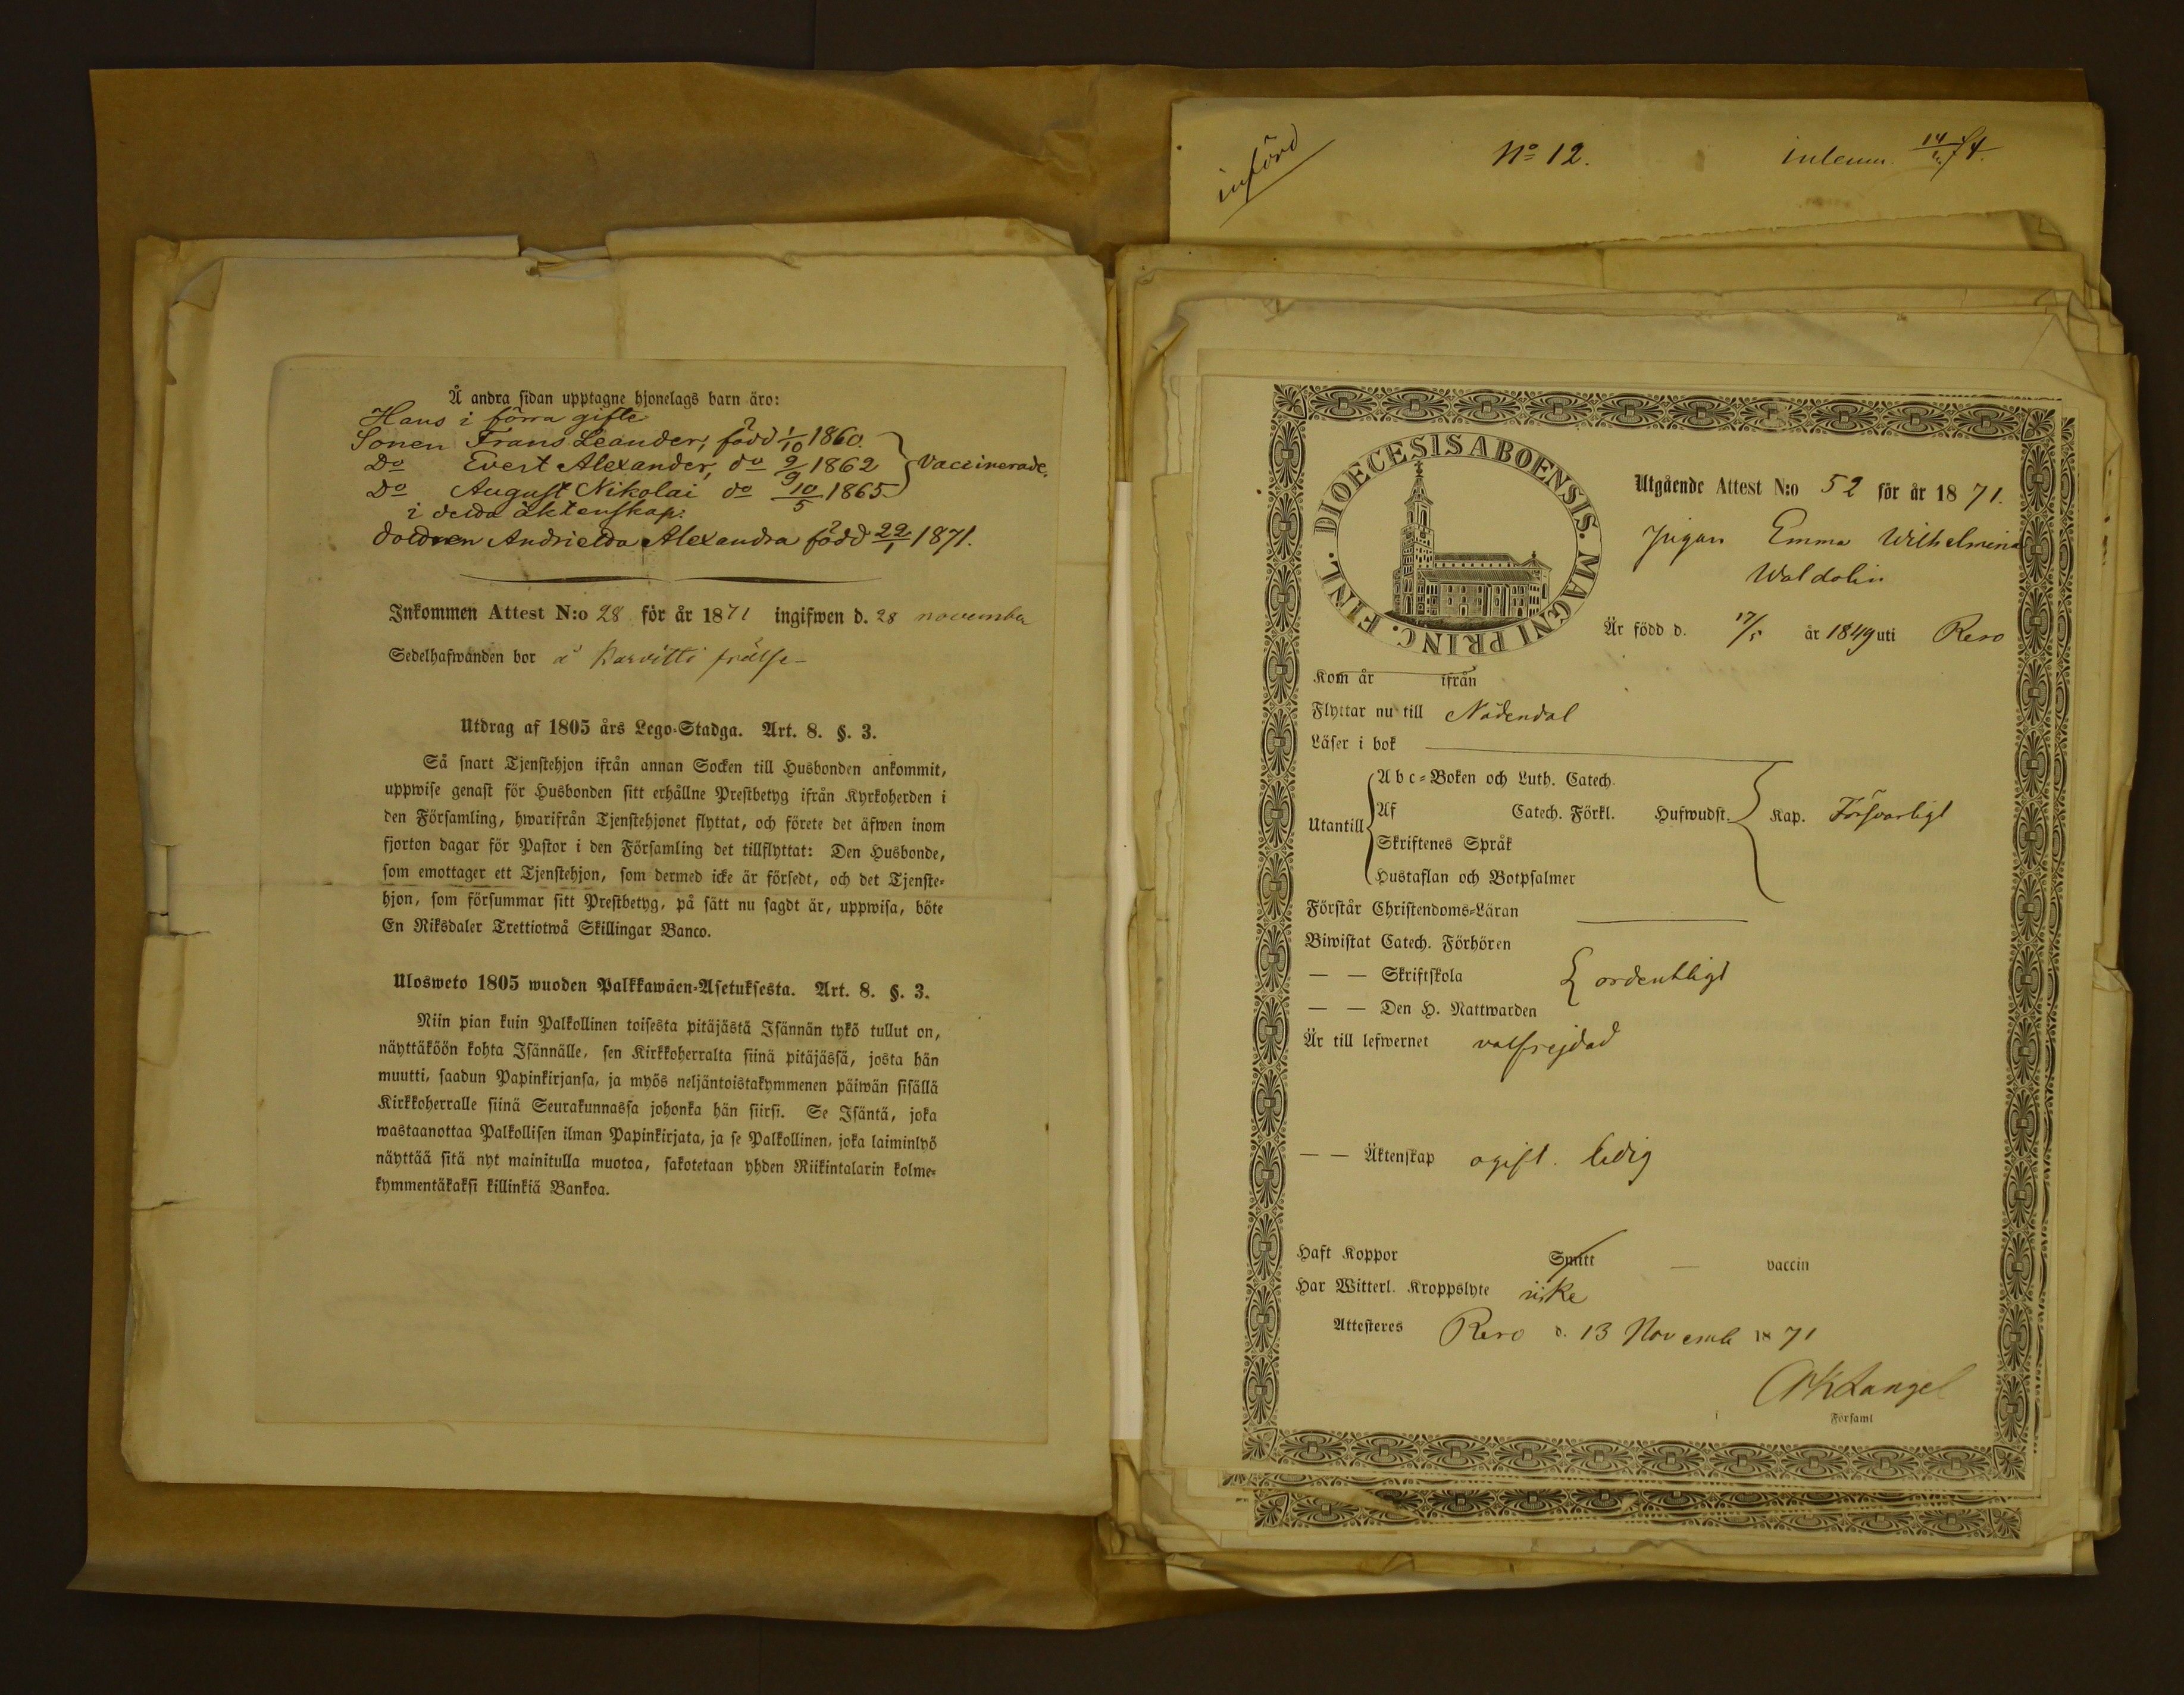 Å andra sidan upptagne hjonelags barn äro:
Hans i förra gifte
Sonen Frans Leander, född 1/10 1860.
Do Evert Alexander, do 9/9 1862 } Vaccinerade.
Do August Nikolai do 10/5 1865
i detta äktenskap:
dottren Andrietta Alexandra född 22/1 1871.
Inkommen Attest N:o 28 för år 1871 ingifwen d. 28 november
Sedelhafwanden bor å Karvitti frälse
Utdrag af 1805 års Lego-Stadga. Art. 8. §. 3.
Så snart Tjenstehjon ifrån annan Socken till Husbonden ankommit,
uppwise genast för Husbonden sitt erhållne Prestbetyg ifrån Kyrkoherden i
den Församling, hwarifrån Tjenstehjonet flyttat, och förete det äfwen inom
fjorton dagar för Pastor i den Församling det tillflyttat: Den Husbonde,
som emottager ett Tjenstehjon, som dermed icke är försedt, och det Tjenste-
hjon, som försummar sitt Prestbetyg, på sätt nu sagdt är, uppwisa, böte
En Riksdaler Trettiotwå Skillingar Banco.
Ulosweto 1805 wuoden Palkkawäen-Asetuksesta. Art. 8. §. 3.
Niin pian kuin Palkollinen toisesta pitäjästä Isännän tykö tullut on,
näyttäköön kohta Isännälle, sen Kirkkoherralta siinä pitäjässä, josta hän
muutti, saadun Papinkirjansa, ja myös neljäntoistakymmenen päiwän sisällä
Kirkkoherralle siinä Seurakunnassa johonka hän siirsi. Se Isäntä, joka
wastaanottaa Palkollisen ilman Papinkirjata, ja se Palkollinen, joka laiminlyö
näyttää sitä nyt mainitulla muotoa, sakotetaan yhden Riikintalarin kolme-
kymmentäkaksi killinkiä Bankoa.
införd
No 12.
inlemn. 14/ 74.
DIOECESIS ABOENSIS. MAGNI PRINC. FINL.
Utgående Attest N:o 52 för år 1871.
Pigan Emma Wilhelmina
Waldolin
Är född d. 17/5 år 1849 uti Reso
Kom år ifrån
Flyttar nu till Nådendal
Läser i bok
Utantill
Abc-Boken och Luth. Catech.
Af Catech. Förkl. Hufwudst. Kap. Försvarligt
Skriftenes Språk
Hustaflan och Botpsalmer
Förstår Christendoms-Läran
Biwistat Catech. Förhören
— — Skriftskola } ordentligt
— — Den H. Nattwarden
Är till lefwernet välfrejdad
— — Äktenskap ogift. ledig
Haft Koppor Smitt — vaccin
Har Witterl. Kroppslyte icke
Attesteres Reso d. 13 Novemb 1871
Langel
Församl